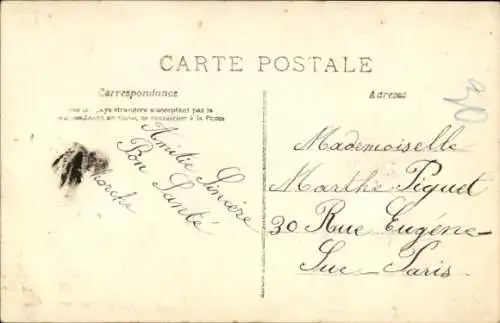 CARTE POSTALE
Correspondance
pays étrangers n'acceptent pas la
se renseigner à la Poste
Amitié Sincère
Bon Santé
Adresse
Mademoiselle
Marthe Piguet
30 Rue Eugène-
Sue - Paris